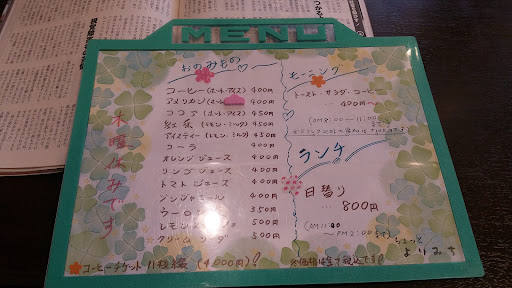 MENU
おのみもの
コーヒー(ホット・アイス) 400円
アメリカン(ホット 400円
ココア(ホット・アイス) 450円
紅茶(レモン・ミルク) 450円
アイスティー(レモン・ミルク) 450円
コーラ 400円
オレンジジュース 400円
リンゴジュース 400円
トマトジュース 400円
ジンジャエール 400円
ウーロン 350円
レモン 500円
クリームソーダ 500円
コーヒーチケット 11枚綴 (4,000円)!
木曜休みです
モーニング
トースト・サラダ・コーヒー
… 400円~
(AM8:00~11:00
ランチ
日替り
… 800円
(AM11:00
~PM2:00まで)
※価格は全て税込です!
ちょっと
よりみち